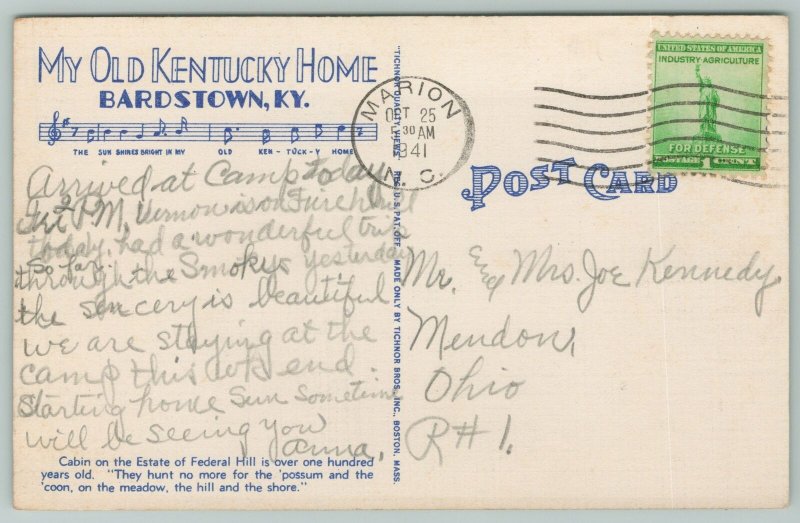 MY OLD KENTUCKY HOME
BARDSTOWN, KY.
THE SUN SHINES BRIGHT IN MY OLD KEN-TUCK-Y HOME
Arrived at Camp today
Fri 2 P.M. Vernon is on Fire
today, had a wonderful trip
so far.
through the Smokys yesterday
the sencery is beautiful
we are staying at the
camp this wk end.
Starting home Sun Sometime
will be seeing you
Anna,
Cabin on the Estate of Federal Hill is over one hundred
years old. "They hunt no more for the 'possum and the
'coon, on the meadow, the hill and the shore."
"TICHNOR QUALITY VIEWS" REG. U. S. PAT. OFF. MADE ONLY BY TICHNOR BROS., INC., BOSTON, MASS.
MARION
OCT 25
5 30 AM
1941
N. C.
UNITED STATES OF AMERICA
INDUSTRY·AGRICULTURE
FOR DEFENSE
POSTAGE 1 CENT
POST CARD
Mr. and Mrs. Joe Kennedy
Mendon,
Ohio
R#1.